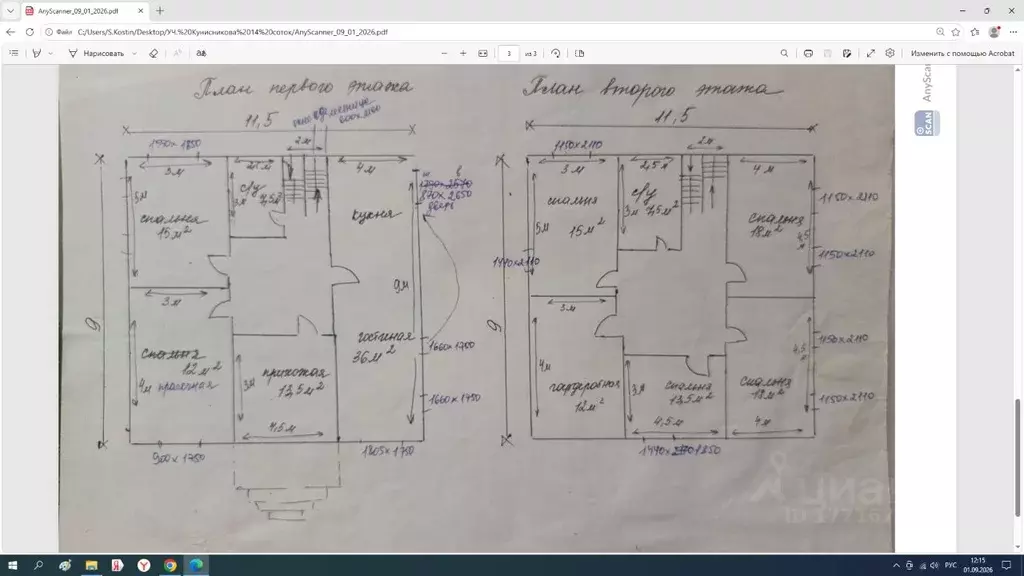 AnyScanner_09_01_2026.pdf
Файл
C:/Users/S.Kostin/Desktop/УЧ.%20Кунисникова%2014%20соток/AnyScanner_09_01_2026.pdf
Нарисовать
3
из 3
Изменить с помощью Acrobat
AnyScan
SCAN
План первого этажа
11,5
2м
1990 x 1850
3м
4м
870 x 2650
дверь
5м
спальня
15м²
с/у
3м
7,5м²
кухня
9м
9
3м
гостиная
36м²
1660 x 1700
спальня
12м²
4м
прачечная
прихожая
13,5м²
3м
1660 x 1450
4,5м
900 x 1750
1805 x 1750
План второго этажа
11,5
2м
1150 x 2110
3м
2,5м
4м
5м
спальня
15м²
с/у
3м
7,5м²
спальня
18м²
4,5м
1150 x 2110
1150 x 2110
1490 x 2110
3м
9
4м
гардеробная
12м²
3м
спальня
13,5м²
4,5м
спальня
18м²
4м
4,5
1150 x 2110
1150 x 2110
циан
12:15
РУС
01.09.2026